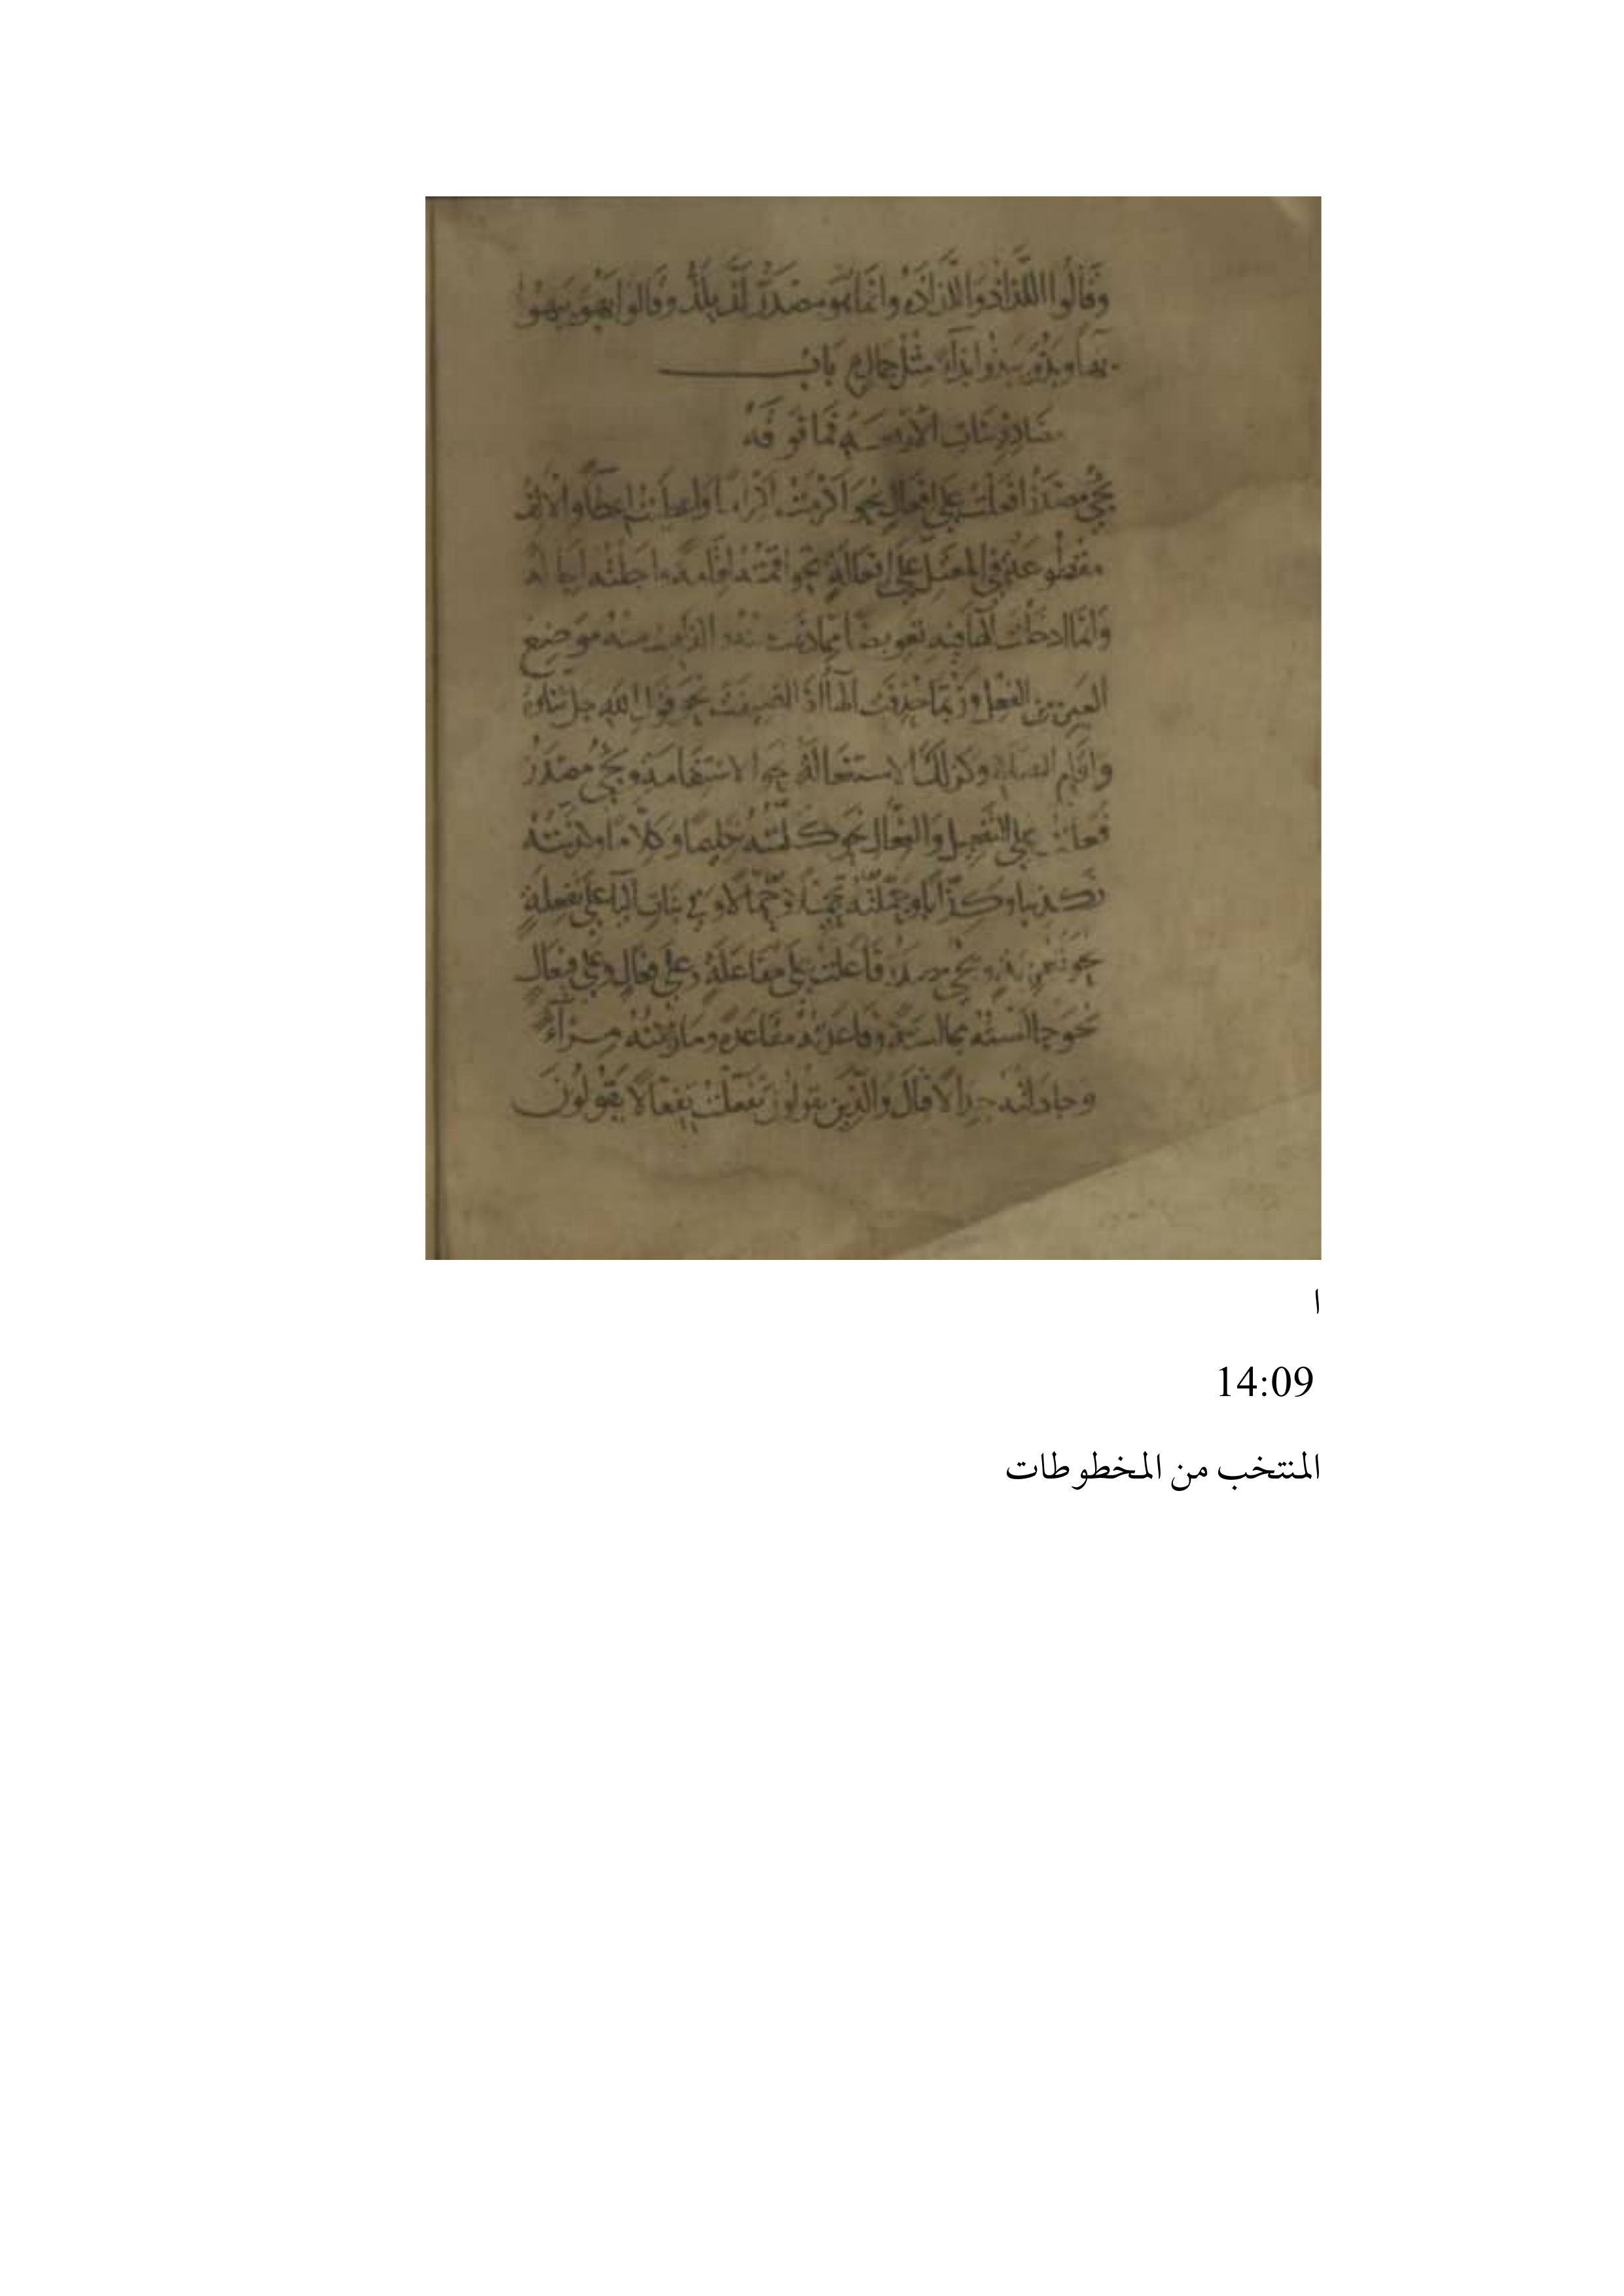 وقالوا اللذاذ واللذاذه وانما هو مصدر لذ يلذ وقالوا بهو يبهوا
بهاء وبذو يبذوا بذاء مثل جمال باب
مصادر بنات الاربعه فما فوقه
يجي مصدر افعلت على افعال نحو اكرمت اكراما واعطيت اعطاء والالف
مقطوعة وفي المعتل على افعالة نحو اقمته اقامة واجلته اجالة
وانما ادخلت الهاء فيه تعويضا مما ذهب منه الذاهب منه موضع
العين من الفعل وربما حذفت الهاء اذا اضيفت نحو قول الله جل ثناؤه
واقام الصلاة وكذلك الاستفعالة نحو الاستقامة ويجي مصدر
فعلت على التفعيل والفعال نحو كلمته كليما وكلاما وكذبته
تكذيبا وكذابا وحملته تحميلا وحمالا وفي بنات الياء على تفعلة
نحو ويجي مصدر فاعلت على مفاعلة وعلى فعال وعلى فيعال
نحو جالسته مجالسة وقاعدته مقاعدة وماريته مراء
وجادلته جدالا قال والذين يقولون تفعلت تفعالا يقولون
ا
14:09
المنتخب من المخطوطات